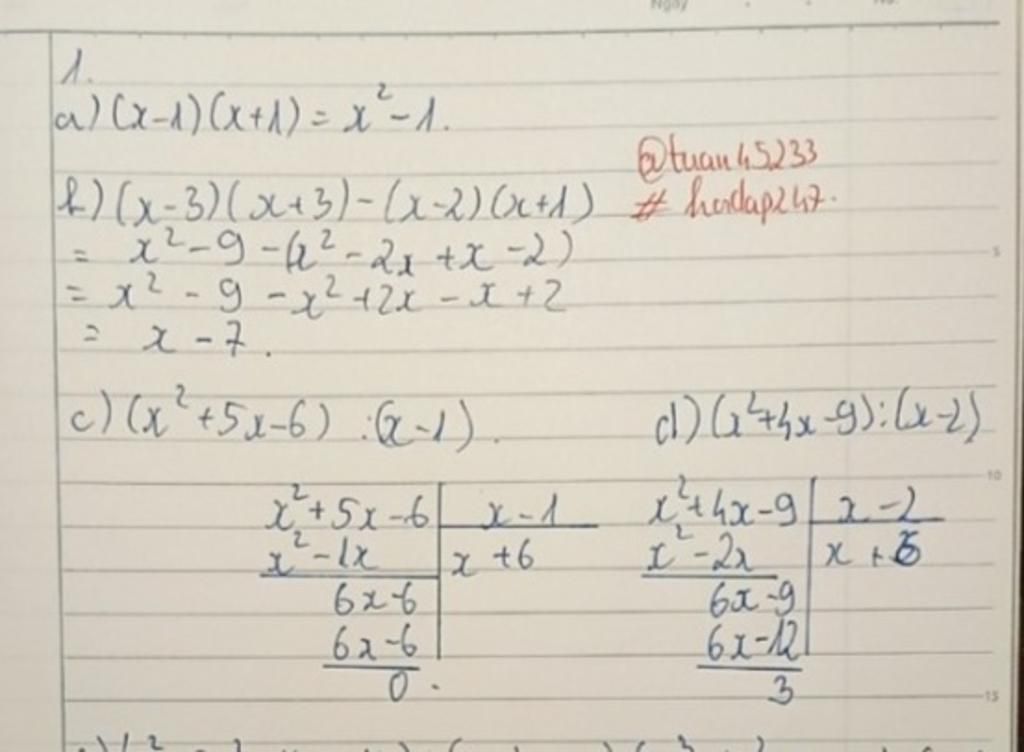 Ngày No.
1.
a) (x-1)(x+1) = x² - 1.
@tuan45233
b) (x-3)(x+3) - (x-2)(x+1)
# hoidap247.
= x² - 9 - (x² - 2x + x - 2)
= x² - 9 - x² + 2x - x + 2
= x - 7.
c) (x² + 5x - 6) : (x - 1).
d) (x² + 4x - 9) : (x - 2)
x² + 5x - 6 x - 1
x² - 1x x + 6
6x - 6
6x - 6
0.
x² + 4x - 9 x - 2
x² - 2x x + 6
6x - 9
6x - 12
3
5
10
15